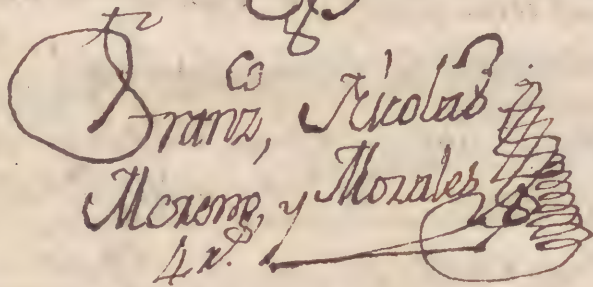 Franz,co Nicolas
Moreno, y Morales